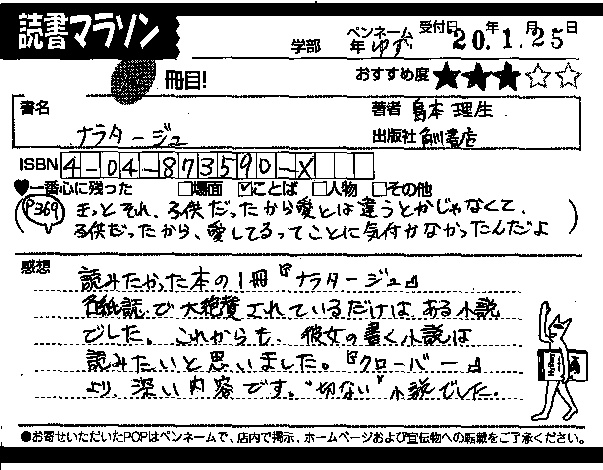 読書マラソン
学部 年 ペンネーム ゆず 受付日 20.年1.月25日
冊目! おすすめ度★★★☆☆
書名 ナラタージュ
著者 島本理生
出版社 角川書店
ISBN 4-04-873590-X
♥一番心に残った □場面 ☑ことば □人物 □その他
(P369 きっとそれ、子供だったから愛とは違うとかじゃなくて、
子供だったから、愛してるってことに気付かなかったんだよ)
感想
読みたかった本の1冊『ナラタージュ』
各紙誌で大絶賛されているだけはある小説
でした。これからも、彼女の書く小説は
読みたいと思いました。『クローバー』
より、深い内容です。"切ない"小説でした。
●お寄せいただいたPOPはペンネームで、店内で掲示、ホームページおよび宣伝物への転載をご了承ください。